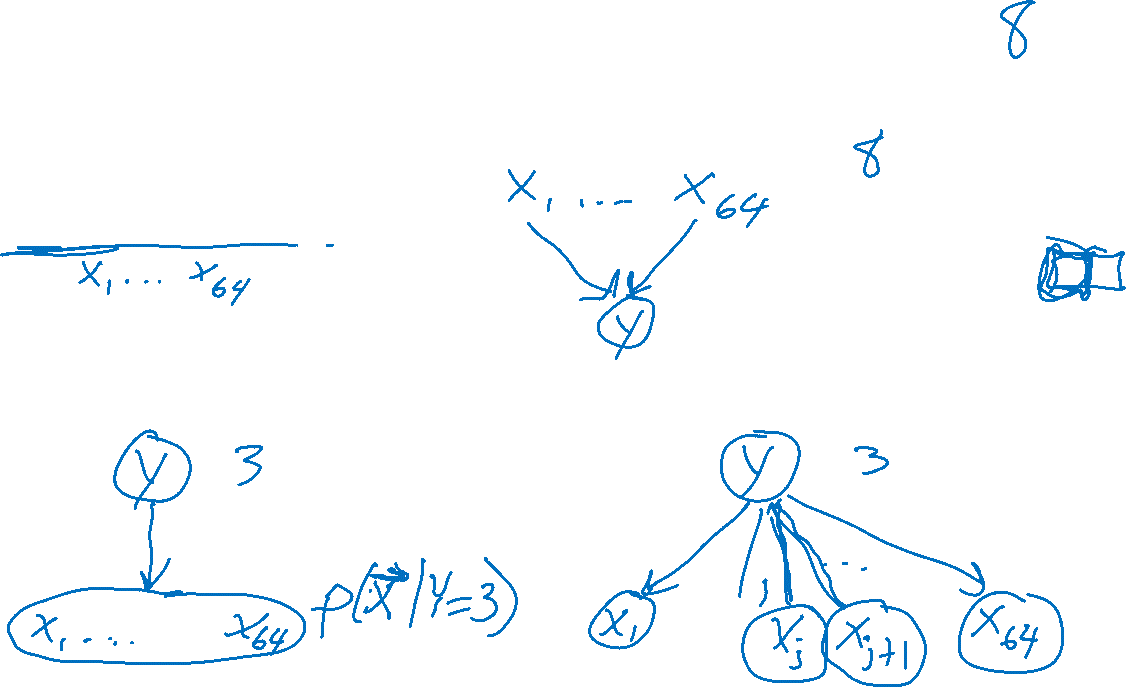 8
8
X₁, ... X₆₄
X₁, ... X₆₄
Y
Y 3
Y 3
...
X₁, ... X₆₄ P(X⃗ | Y=3)
X₁ X_j X_{j+1} X₆₄